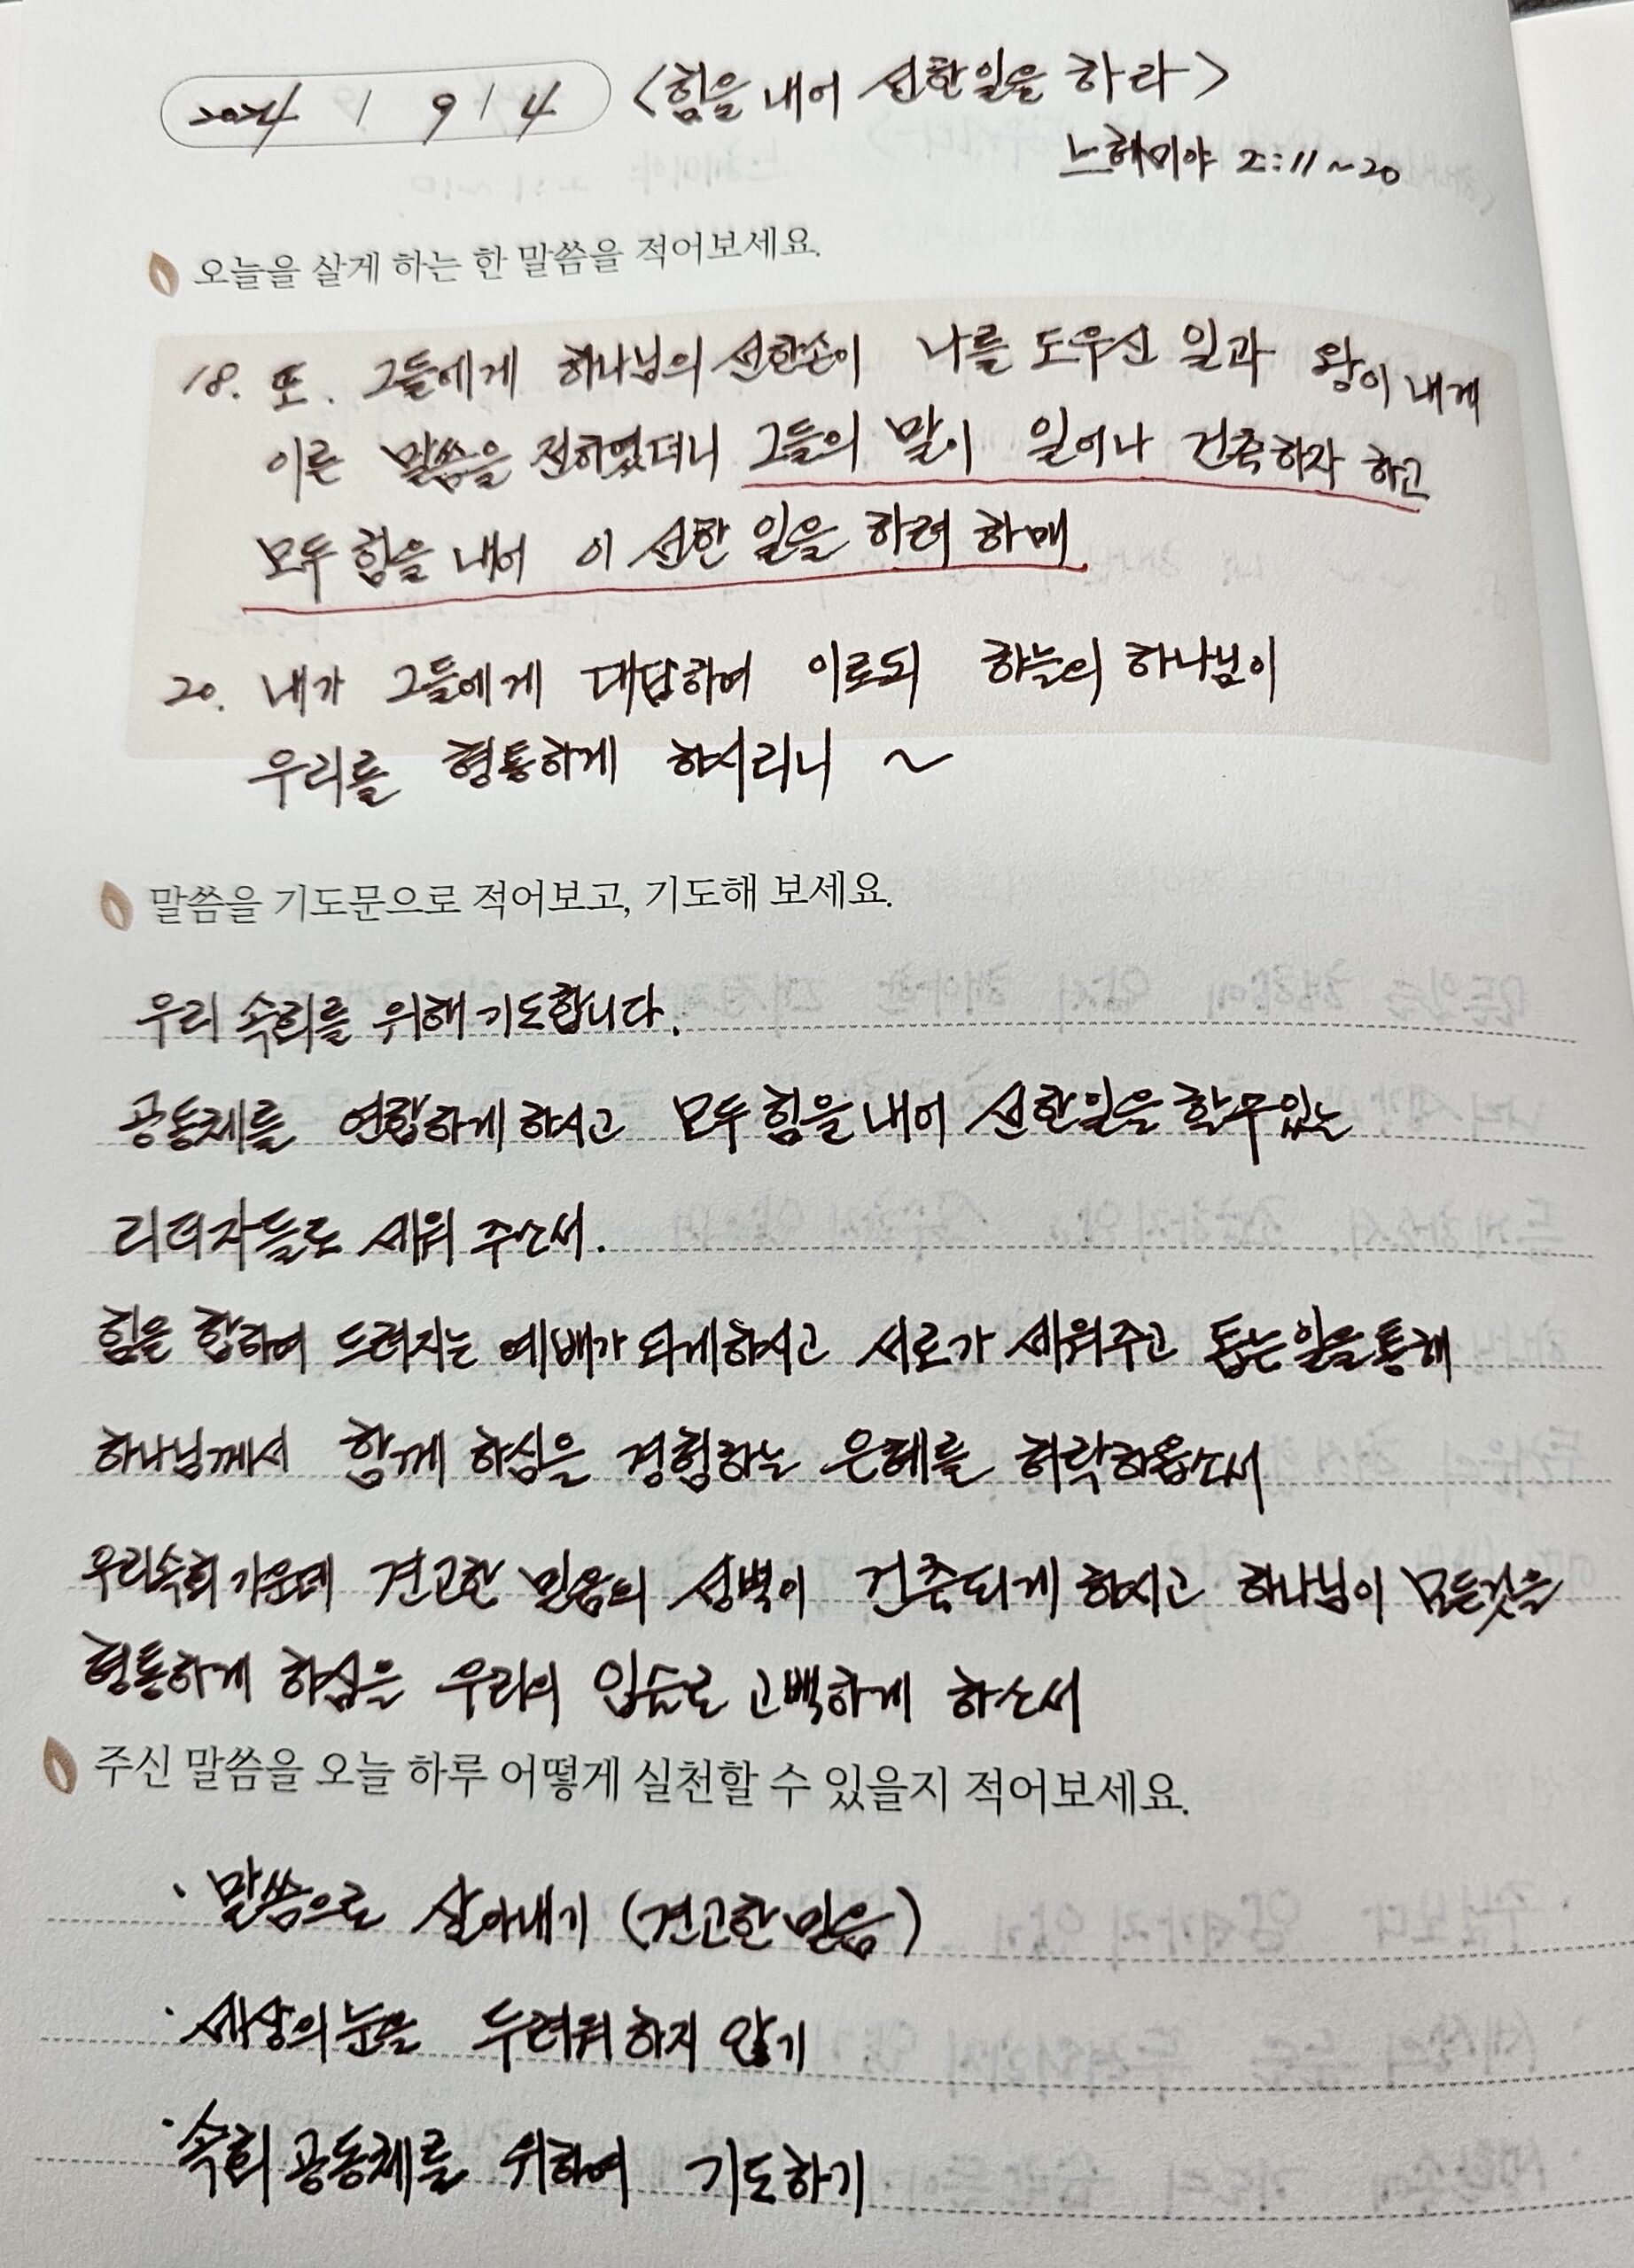 2024 / 9 / 4 <힘을 내어 선한일을 하라>
느헤미야 2:11~20
오늘을 살게 하는 한 말씀을 적어보세요.
18. 또. 그들에게 하나님의 선한손이 나를 도우신 일과 왕이 내게
이른 말씀을 전하였더니 그들의 말이 일어나 건축하자 하고
모두 힘을 내어 이 선한 일을 하려 하매
20. 내가 그들에게 대답하여 이로되 하늘의 하나님이
우리를 형통하게 하시리니 ~
말씀을 기도문으로 적어보고, 기도해 보세요.
우리 속회를 위해 기도합니다.
공동체를 연합하게 하시고 모두 힘을 내어 선한일을 할수있는
리더자들로 세워 주소서.
힘을 합하여 드려지는 예배가 되게하시고 서로가 세워주고 돕는일을통해
하나님께서 함께 하심을 경험하는 은혜를 허락하옵소서
우리속회 가운데 견고한 믿음의 성벽이 건축되게 하시고 하나님이 모든것을
형통하게 하심을 우리의 입술로 고백하게 하소서
주신 말씀을 오늘 하루 어떻게 실천할 수 있을지 적어보세요.
· 말씀으로 살아내기 (견고한 믿음)
· 세상의 눈을 두려워 하지 않기
· 속회 공동체를 위하여 기도하기